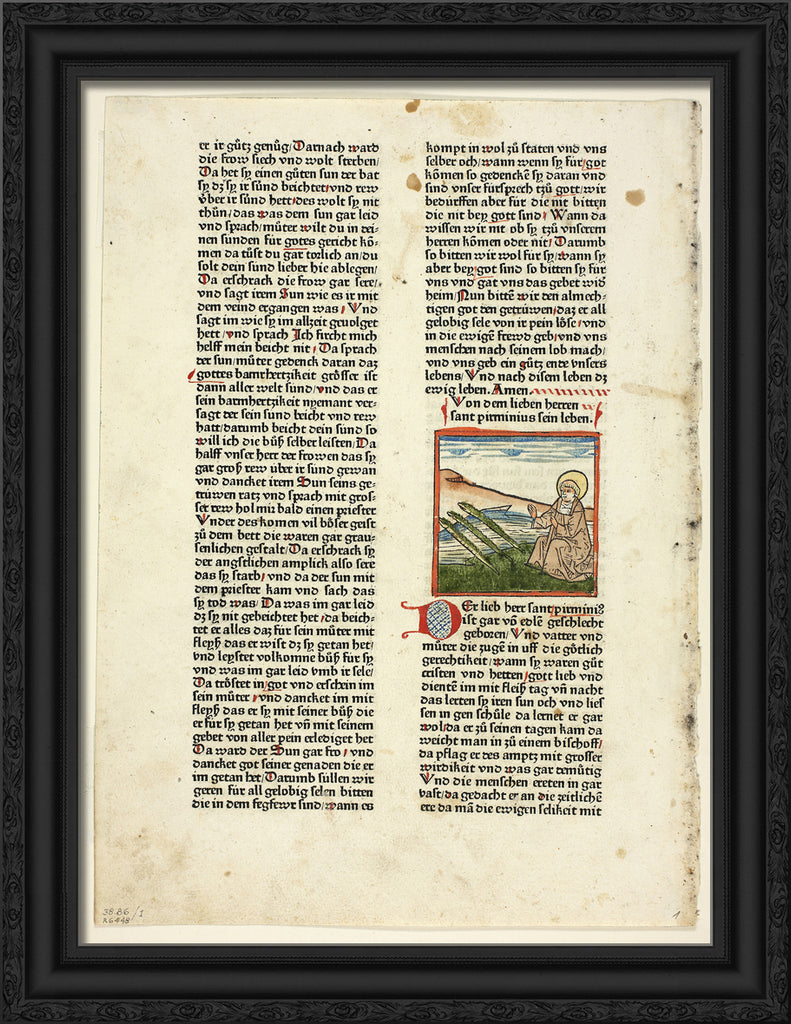 er ir gůtz genůg/Darnach ward
die frow siech vnd wolt sterben/
Da het sy einen gůten sun der bat
sy dz sy ir sünd beichtet/vnd rew
über ir sünd hett/des wolt sy nit
thůn/das was dem sun gar leid
vnd sprach/můter wilt du in dei-
nen sunden für gotes gericht kö-
men da tůst du gar torlich an/du
solt dein sund lieber hie ablegen/
Da erschrack die frow gar sere/
vnd sagt irem Sun wie es ir mit
dem veind ergangen was/Vnd
sagt im wie sy im allzeit geuolget
hett/vnd sprach Ich fürcht mich
helff mein beicht nit/Da sprach
der sun/můter gedenck daran daz
gottes barmhertzikeit grösser ist
dann aller welt sund/vnd das er
sein barmhertzikeit nyemant ver-
sagt der sein sund beicht vnd rew
hatt/darumb beicht dein sünd so
will ich die bůß selber leisten/Da
halff vnser herr der frowen das sy
gar groß rew uber ir sünd gewan
vnd dancket irem Sun seins ge-
trüwen ratz vnd sprach mit gros-
ser rew hol mir bald einen priester
Vnder des komen vil böser geist
zů dem bett die waren gar grau-
senlichen gestalt/Da erschrack sy
der angstlichen amplick also sere
das sy starb/vnd da der sun mit
dem priester kam vnd sach das
sy tod was/Da was im gar leid
dz sy nit gebeichtet het/da beich-
tet er alles daz für sein můter mit
fleyß das er wist dz sy getan het/
vnd leystet volkomne bůß für sy
vnd was im gar leid vmb ir sele/
Da tröstet in/got vnd erschein im
sein můter/vnd dancket im mit
fleyß das er sy mit seiner bůß die
er für sy getan het vñ mit seinem
gebet von aller pein erlediget het
Da ward der Sun gar fro/vnd
dancket got seiner genaden die er
im getan het/Darumb süllen wir
geren für all gelobig selen bitten
die in dem fegfewr sind/wann es
kompt in wol zů staten vnd vns
selber och/wann wenn sy für/got
kömen so gedencke sy daran vnd
sind vnser fürsprech tzů gott/wir
bedürffen aber für die nit bitten
die nit bey gott sind/Wann da
wissen wir nit ob sy tzů vnserem
herren kömen oder nit/Darumb
so bitten wir wol für sy/wann sy
aber bey/got sind so bitten sy für
vns vnd gat vns das gebet wid
heim/Nun bittē wir den almech-
tigen got den getrüwen/daz er all
gelobig sele von ir pein löse/vnd
in die ewige frewd geb/vnd vns
menschen nach seinem lob mach/
vnd vns geb ein gůtz ende vnsers
lebens/Vnd nach disem leben dz
ewig leben. Amen
Von dem lieben herren
sant pirminius sein leben.
DEr lieb herr sant/pirminiꝰ
ist gar vō edlē geschlecht
geboren/Vnd vatter vnd
můter die zugē in uff die götlich
gerechtikeit/wann sy waren gůt
cristen vnd hetten/gott lieb vnd
dientē im mit fleiß tag vñ nacht
das lerten sy iren sun och vnd lies
sen in gen schůle da lernet er gar
wol/da er zů seinen tagen kam da
weicht man in zů einem bischoff/
da pflag er des amptz mit grosser
wirdikeit vnd was gar demütig
Vnd die menschen ereten in gar
vast/da gedacht er an die zeitlichē
ere da mā die ewigen selikeit mit
38.86/1
R6448
1